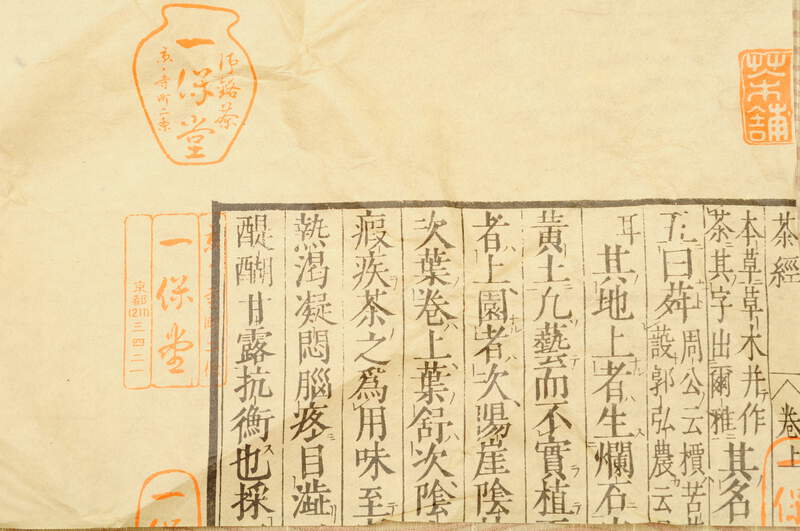 茶舖
御銘茶
一保堂
京・寺町二条
茶經
卷上
本草草木并作
茶其字出爾雅
其名
五曰荈
周公云檟苦
設郭弘農云
耳
其地上者生爛石
黃土凡藝而不實植
者上園者次陽崖陰
次葉卷上葉舒次陰
瘕疾茶之爲用味至
熱渴凝悶腦疼目澁
醍醐甘露抗衡也採
一保堂
京都(211)三四二一
一保
一保